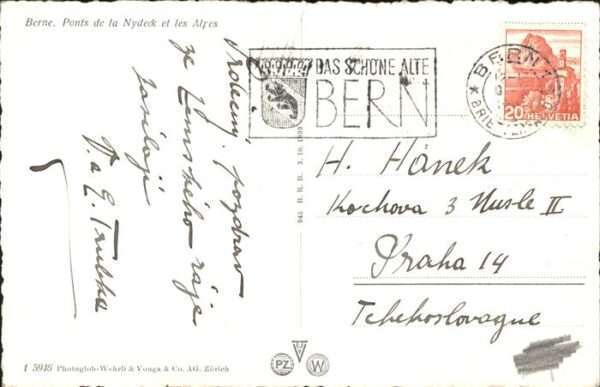 Berne. Ponts de la Nydeck et les Alpes
Srdečný pozdrav
ze Zemského ráje
zasílají
J. a E. Trubka
DAS SCHÖNE ALTE
BERN
BERN 1
20 HELVETIA
H. Hánek
Kochova 3 Nusle II
Praha 14
Tchekoslovaque
943 H. R. B. 3. 10. 1930
PZ
W
1 5946 Photoglob-Wehrli & Vouga & Co. AG. Zürich